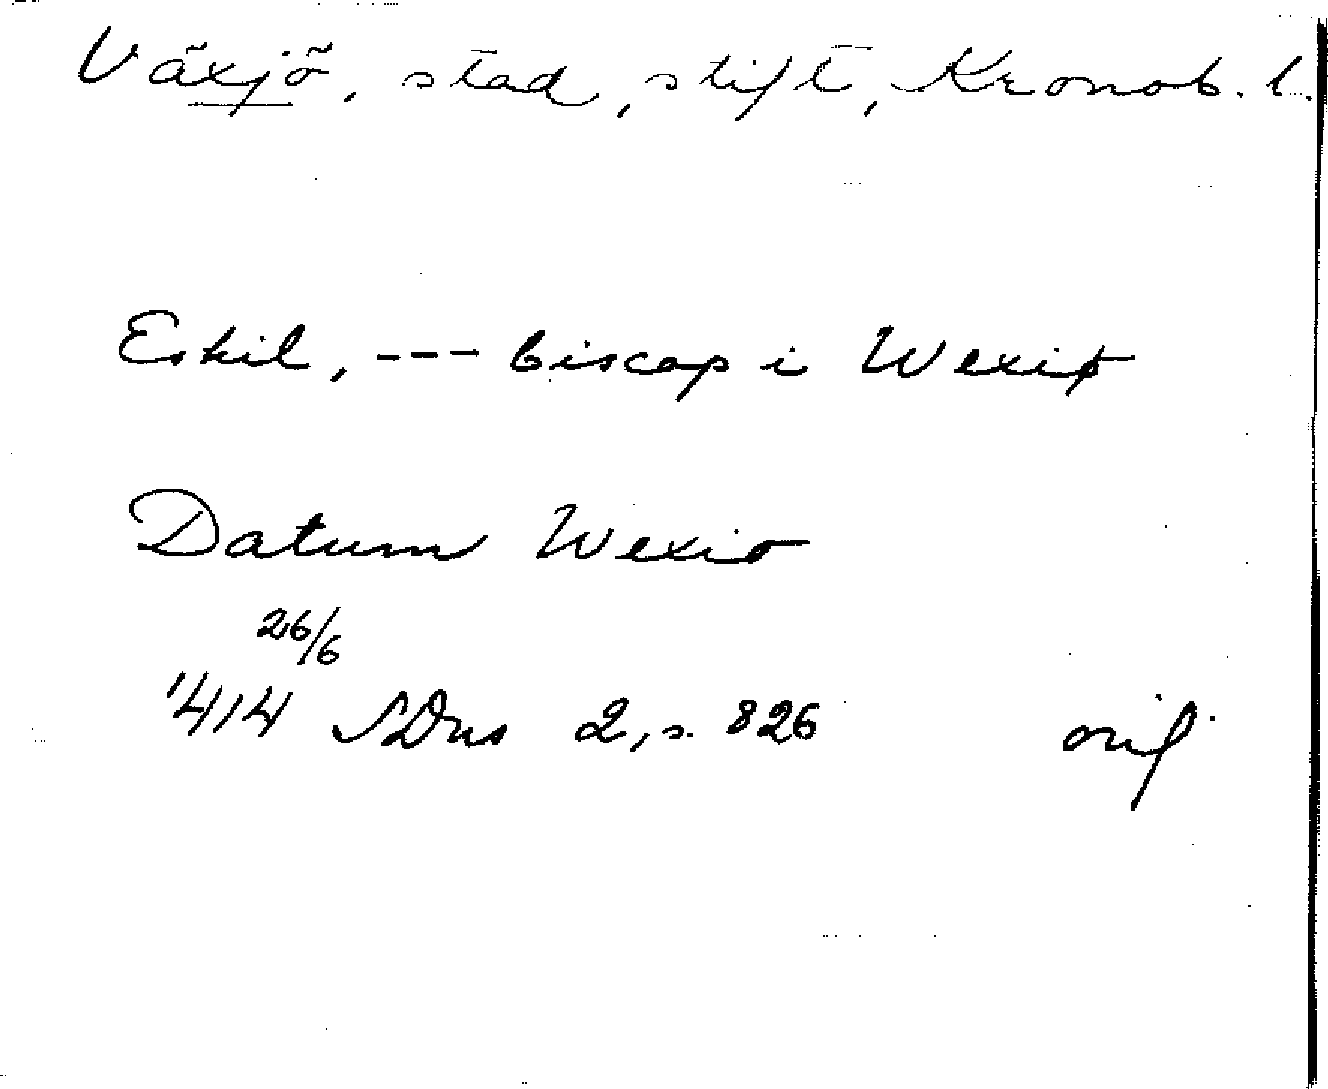 Växjö, stad, stift, Kronob. l.
Eskil, --- biscop i Wexiø
Datum Wexio
26/6
1414 SDns 2, s. 826 orig.